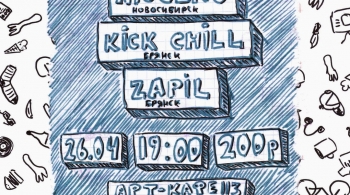 НОВОСИБИРСК
KICK CHILL
БРЯНСК
ZAPIL
БРЯНСК
26.04 19:00 200р
АРТ-КАФЕ 113